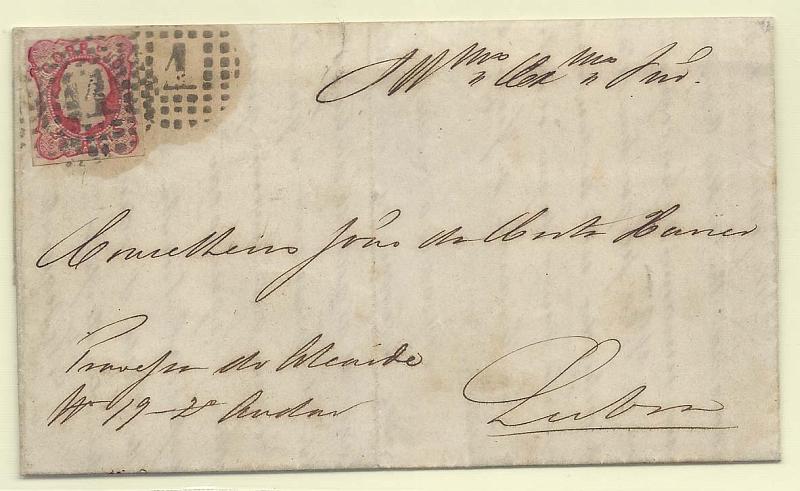 1
Illmo e Exmo Snr.
Conselheiro João da Costa
Travessa do Alcaide
No 19-2o Andar
Lisboa